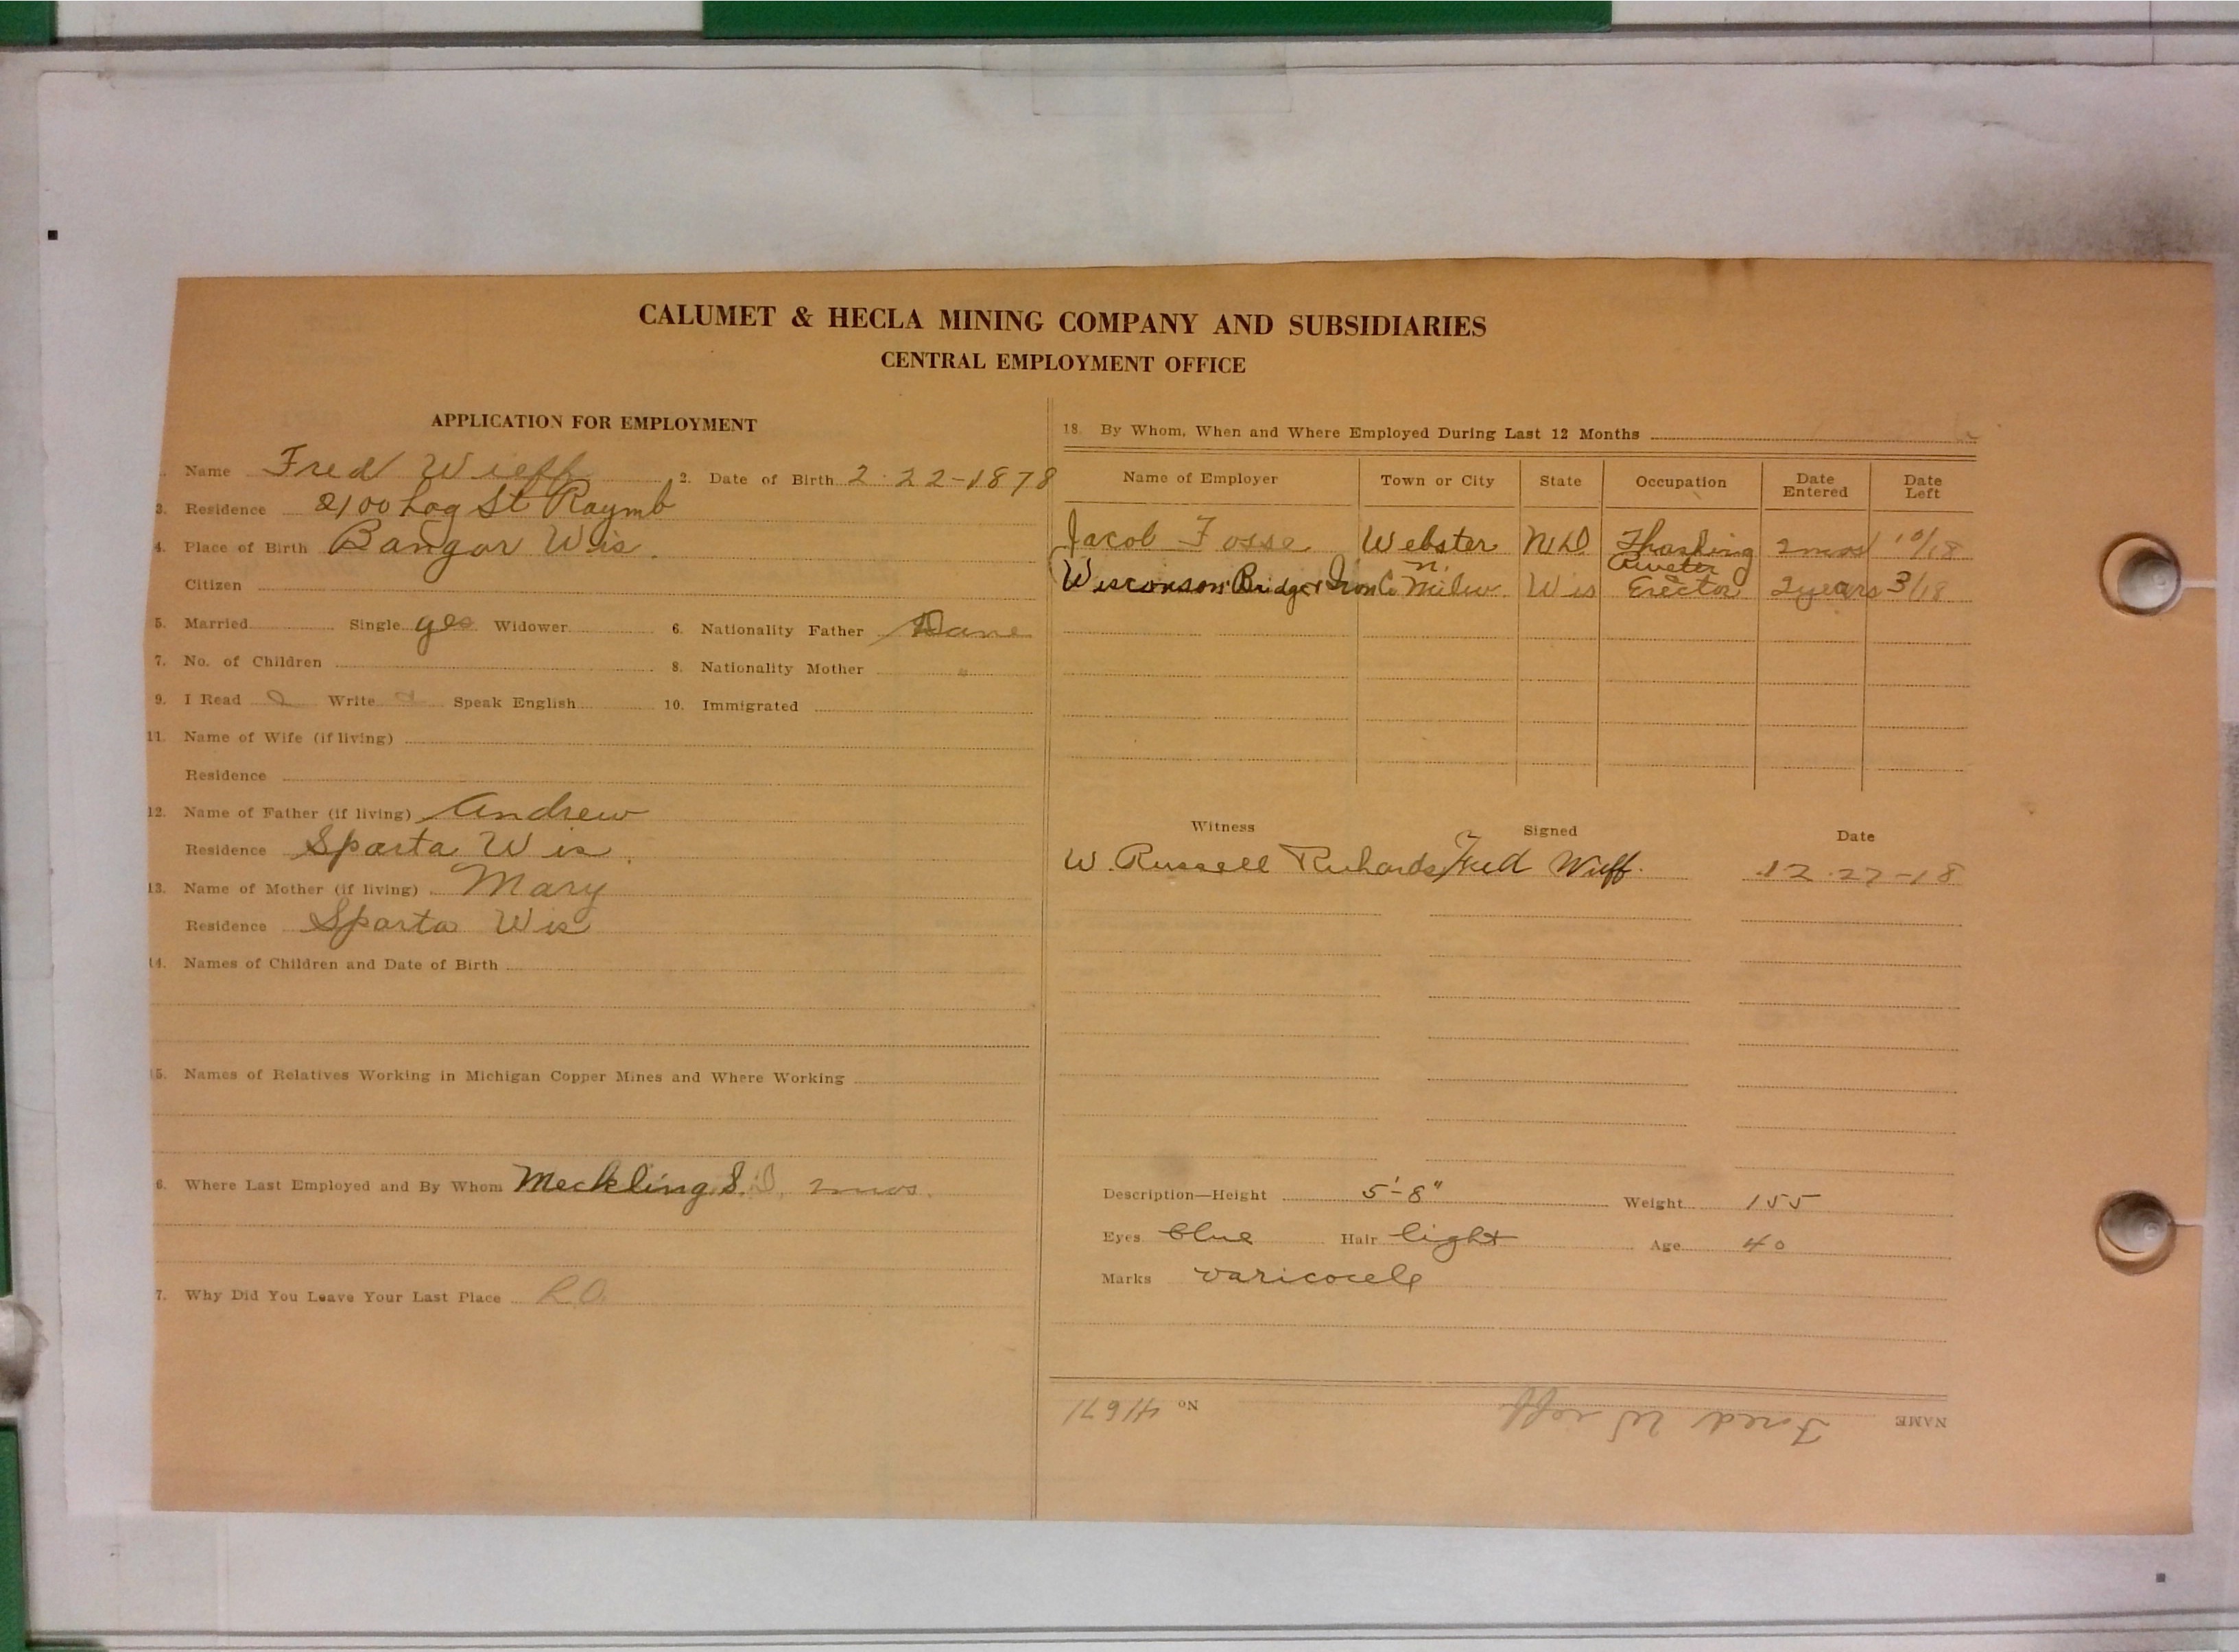 CALUMET & HECLA MINING COMPANY AND SUBSIDIARIES
CENTRAL EMPLOYMENT OFFICE
APPLICATION FOR EMPLOYMENT
Name Fred Wieff 2. Date of Birth 2-22-1878
3. Residence 2100 Log St Raymb
4. Place of Birth Bangor Wis.
Citizen
5. Married Single yes Widower 6. Nationality Father Dane
7. No. of Children 8. Nationality Mother "
9. I Read Write Speak English 10. Immigrated
11. Name of Wife (if living)
Residence
12. Name of Father (if living) Andrew
Residence Sparta Wis.
13. Name of Mother (if living) Mary
Residence Sparta Wis
14. Names of Children and Date of Birth
15. Names of Relatives Working in Michigan Copper Mines and Where Working
6. Where Last Employed and By Whom Meckling S.D. 2mos.
7. Why Did You Leave Your Last Place
18. By Whom, When and Where Employed During Last 12 Months
Name of Employer Town or City State Occupation Date Entered Date Left
Jacob Fosse Webster N.D Thashing 2mos 10/18
Wisconson Bridge & Iron Co Milw. Wis Erector 2years 3/18
Witness Signed Date
W. Russell Richards Fred Wieff. 12-27-18
Description—Height 5'-8" Weight 155
Eyes blue Hair light Age 40
Marks varicocele
NAME Fred Wieff No 41671